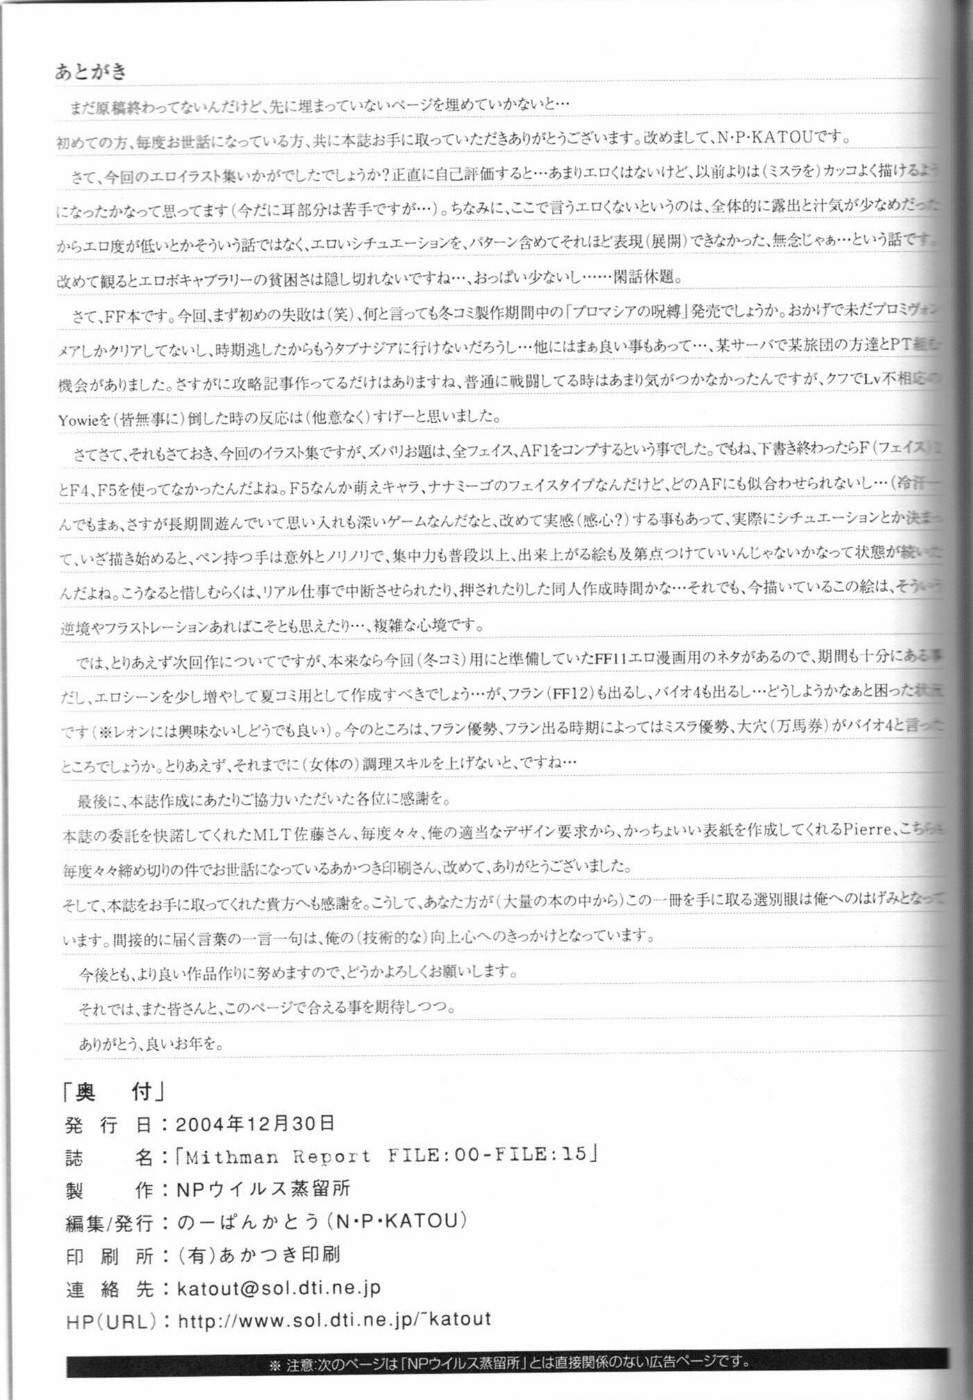 あとがき
まだ原稿終わってないんだけど、先に埋まっていないページを埋めていかないと…
初めての方、毎度お世話になっている方、共に本誌お手に取っていただきありがとうございます。改めまして、N・P・KATOUです。
さて、今回のエロイラスト集いかがでしたでしょうか?正直に自己評価すると…あまりエロくはないけど、以前よりは(ミスラを)カッコよく描けるよう
になったかなって思ってます(今だに耳部分は苦手ですが…)。ちなみに、ここで言うエロくないというのは、全体的に露出と汁気が少なめだった
からエロ度が低いとかそういう話ではなく、エロいシチュエーションを、パターン含めてそれほど表現(展開)できなかった、無念じゃぁ…という話です。
改めて観るとエロボキャブラリーの貧困さは隠し切れないですね…、おっぱい少ないし……閑話休題。
さて、FF本です。今回、まず初めの失敗は(笑)、何と言っても冬コミ製作期間中の「プロマシアの呪縛」発売でしょうか。おかげで未だプロミヴォン
メアしかクリアしてないし、時期逃したからもうタブナジアに行けないだろうし…他にはまぁ良い事もあって…、某サーバで某旅団の方達とPT組む
機会がありました。さすがに攻略記事作ってるだけはありますね、普通に戦闘してる時はあまり気がつかなかったんですが、クフでLv不相応の
Yowieを(皆無事に)倒した時の反応は(他意なく)すげーと思いました。
さてさて、それもさておき、今回のイラスト集ですが、ズバリお題は、全フェイス、AF1をコンプするという事でした。でもね、下書き終わったらF(フェイス)2
とF4、F5を使ってなかったんだよね。F5なんか萌えキャラ、ナナミーゴのフェイスタイプなんだけど、どのAFにも似合わせられないし…(冷汗
んでもまぁ、さすが長期間遊んでいて思い入れも深いゲームなんだなと、改めて実感(感心?)する事もあって、実際にシチュエーションとか決まっ
て、いざ描き始めると、ペン持つ手は意外とノリノリで、集中力も普段以上、出来上がる絵も及第点つけていいんじゃないかなって状態が続いた
んだよね。こうなると惜しむらくは、リアル仕事で中断させられたり、押されたりした同人作成時間かな…それでも、今描いているこの絵は、そういう
逆境やフラストレーションあればこそとも思えたり…、複雑な心境です。
では、とりあえず次回作についてですが、本来なら今回(冬コミ)用にと準備していたFF11エロ漫画用のネタがあるので、期間も十分にある事
だし、エロシーンを少し増やして夏コミ用として作成すべきでしょう…が、フラン(FF12)も出るし、バイオ4も出るし…どうしようかなぁと困った状況
です(※レオンには興味ないしどうでも良い)。今のところは、フラン優勢、フラン出る時期によってはミスラ優勢、大穴(万馬券)がバイオ4と言った
ところでしょうか。とりあえず、それまでに(女体の)調理スキルを上げないと、ですね…
最後に、本誌作成にあたりご協力いただいた各位に感謝を。
本誌の委託を快諾してくれたMLT佐藤さん、毎度々々、俺の適当なデザイン要求から、かっちょいい表紙を作成してくれるPierre、こちらも
毎度々々締め切りの件でお世話になっているあかつき印刷さん、改めて、ありがとうございました。
そして、本誌をお手に取ってくれた貴方へも感謝を。こうして、あなた方が(大量の本の中から)この一冊を手に取る選別眼は俺へのはげみとなって
います。間接的に届く言葉の一言一句は、俺の(技術的な)向上心へのきっかけとなっています。
今後とも、より良い作品作りに努めますので、どうかよろしくお願いします。
それでは、また皆さんと、このページで合える事を期待しつつ。
ありがとう、良いお年を。
「奥 付」
発行日:2004年12月30日
誌 名:「Mithman Report FILE:00-FILE:15」
製 作:NPウイルス蒸留所
編集/発行:のーぱんかとう(N・P・KATOU)
印刷所:(有)あかつき印刷
連絡先:katout@sol.dti.ne.jp
HP(URL):http://www.sol.dti.ne.jp/~katout
※ 注意:次のページは「NPウイルス蒸留所」とは直接関係のない広告ページです。